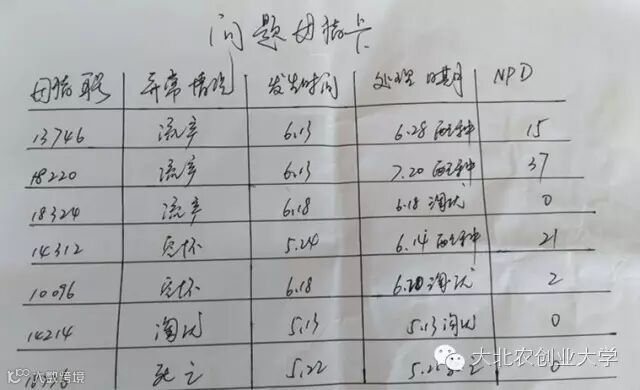 问题母猪卡
母猪耳号 异常情况 发生时间 处理日期 NPD
13746 流产 6.13 6.28配种 15
18220 流产 6.13 7.20配种 37
18324 流产 6.18 6.18淘汰 0
14312 空怀 5.24 6.14配种 21
10096 空怀 6.18 6.20淘汰 2
14214 淘汰 5.13 5.13淘汰 0
死亡 5.22
大北农创业大学
大数跨境